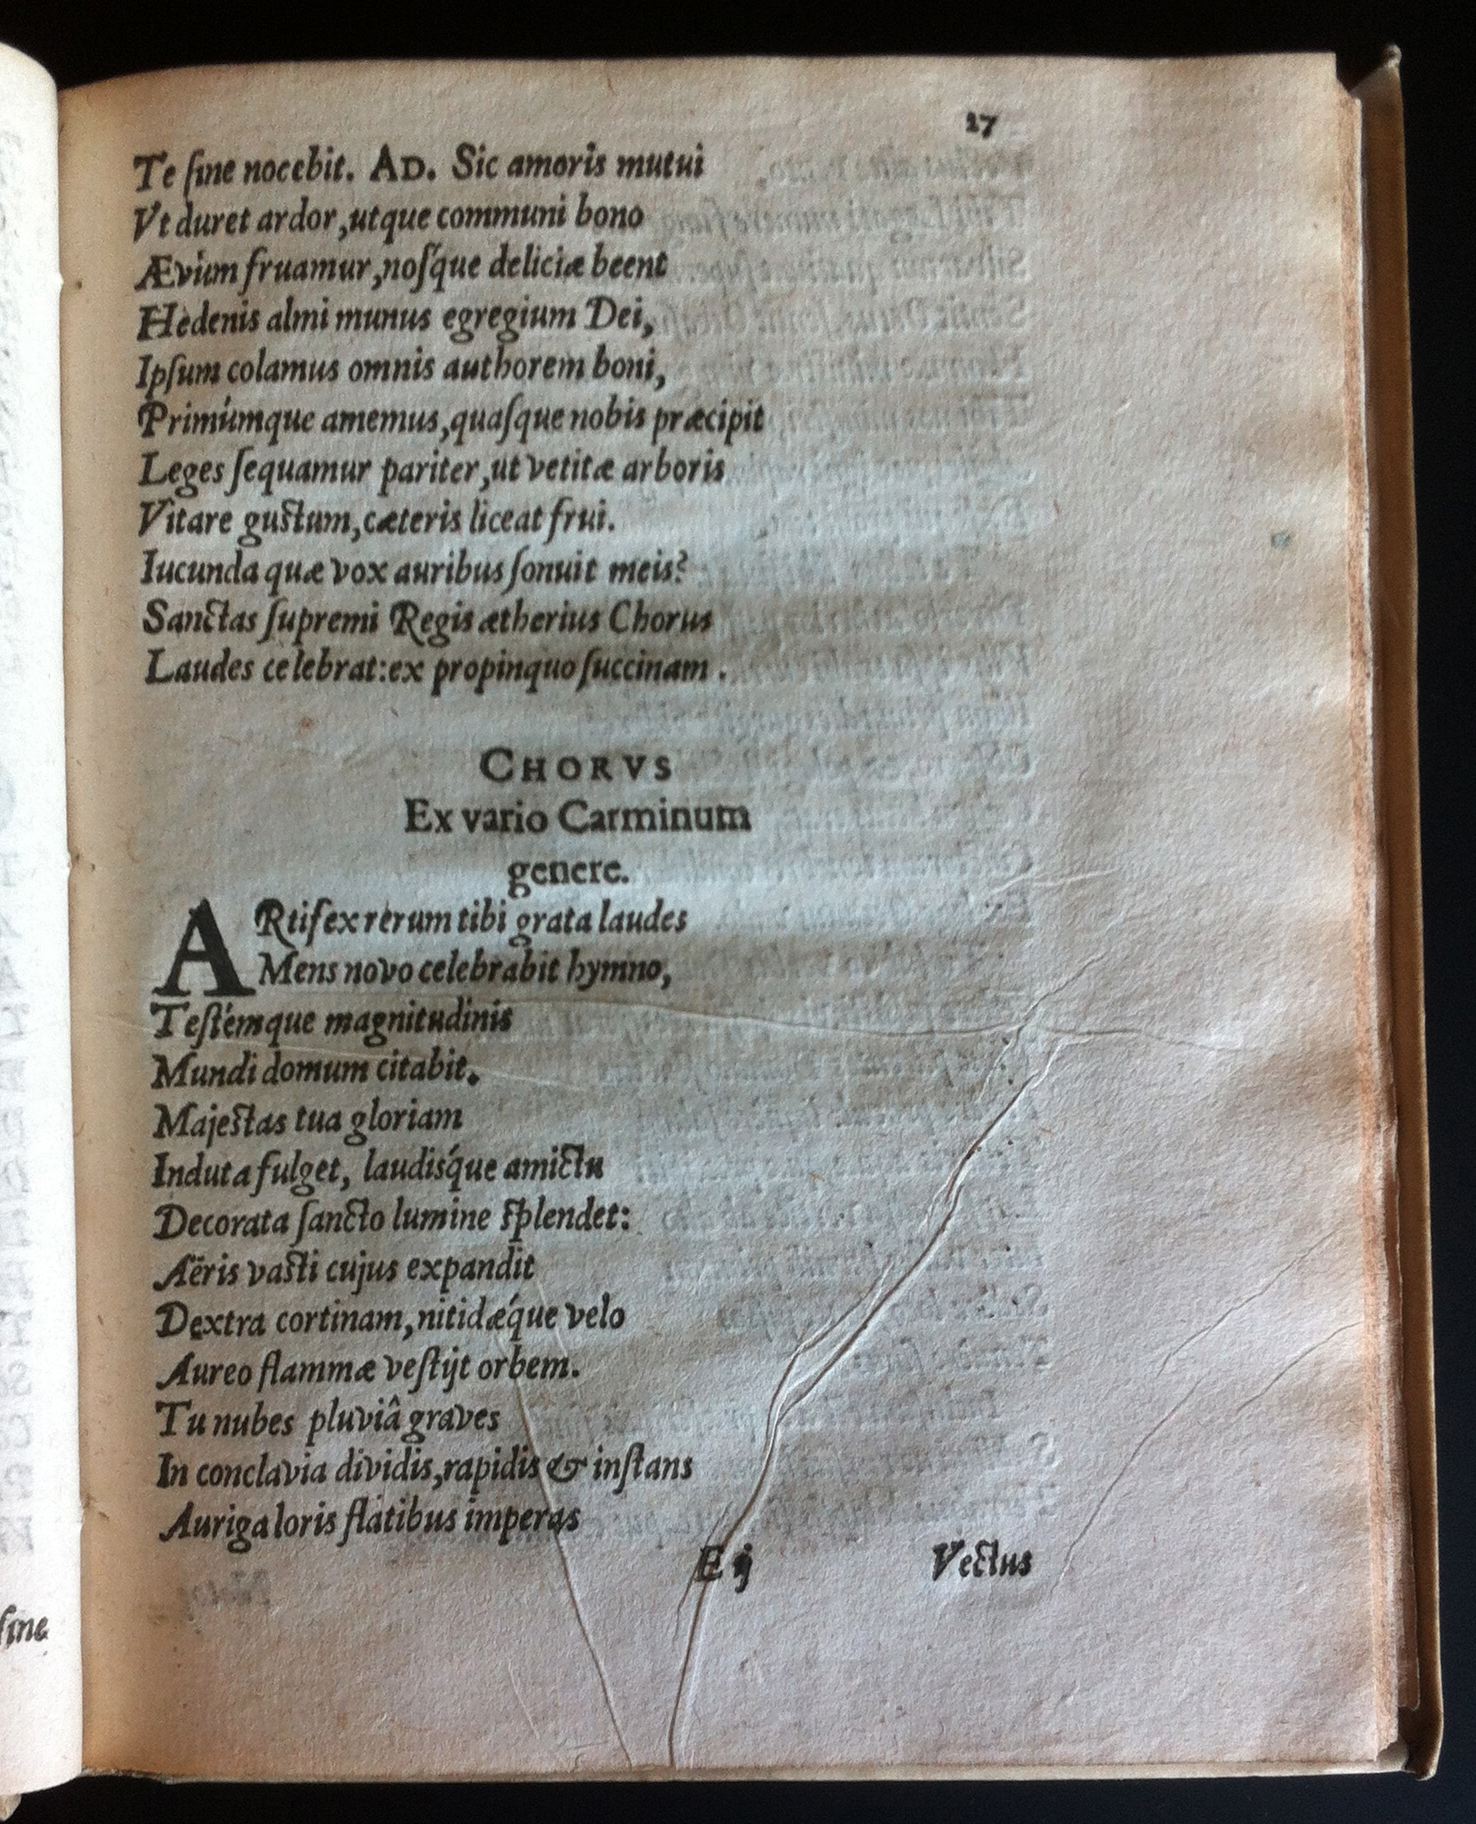 27
Te ſine nocebit. AD. Sic amoris mutui
Vt duret ardor, utque communi bono
Ævum fruamur, noſque deliciæ beent
Hedenis almi munus egregium Dei,
Ipſum colamus omnis authorem boni,
Primúmque amemus, quaſque nobis præcipit
Leges ſequamur pariter, ut vetitæ arboris
Vitare guſtum, cæteris liceat frui.
Iucunda quæ vox auribus ſonuit meis?
Sanctas ſupremi Regis ætherius Chorus
Laudes celebrat: ex propinquo ſuccinam.
CHORVS
Ex vario Carminum
genere.
ARtifex rerum tibi grata laudes
Mens novo celebrabit hymno,
Teſtémque magnitudinis
Mundi domum citabit.
Majeſtas tua gloriam
Induta fulget, laudiſque amictu
Decorata ſancto lumine ſplendet:
Aëris vaſti cujus expandit
Dextra cortinam, nitidæque velo
Aureo flammæ veſtijt orbem.
Tu nubes pluviâ graves
In conclavia dividis, rapidis & inſtans
Auriga loris flatibus imperas
E ij Vectus
ſine